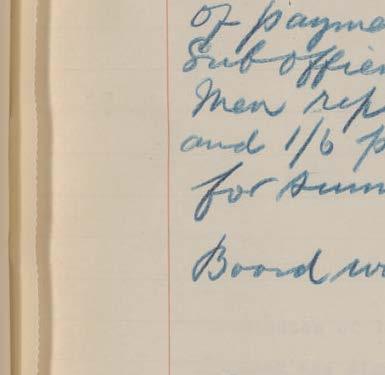 of payme
Sub offier
Men rep
and 1/6 p
for sum
Board w